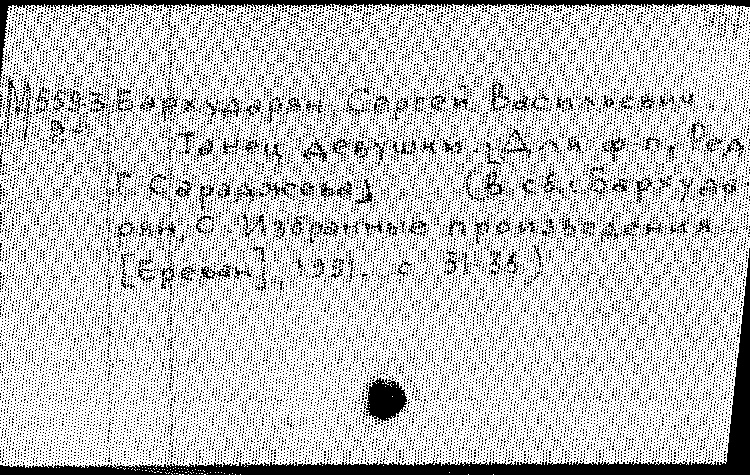 М5593 Бархударян, Сергей Васильевич.
Танец девушки. [Для ф-п., Ред.
Г. Сараджева]. (В сб.: Бархуда-
рян, С. Избранные произведения
[Ереван], 1951. с. 31-35)